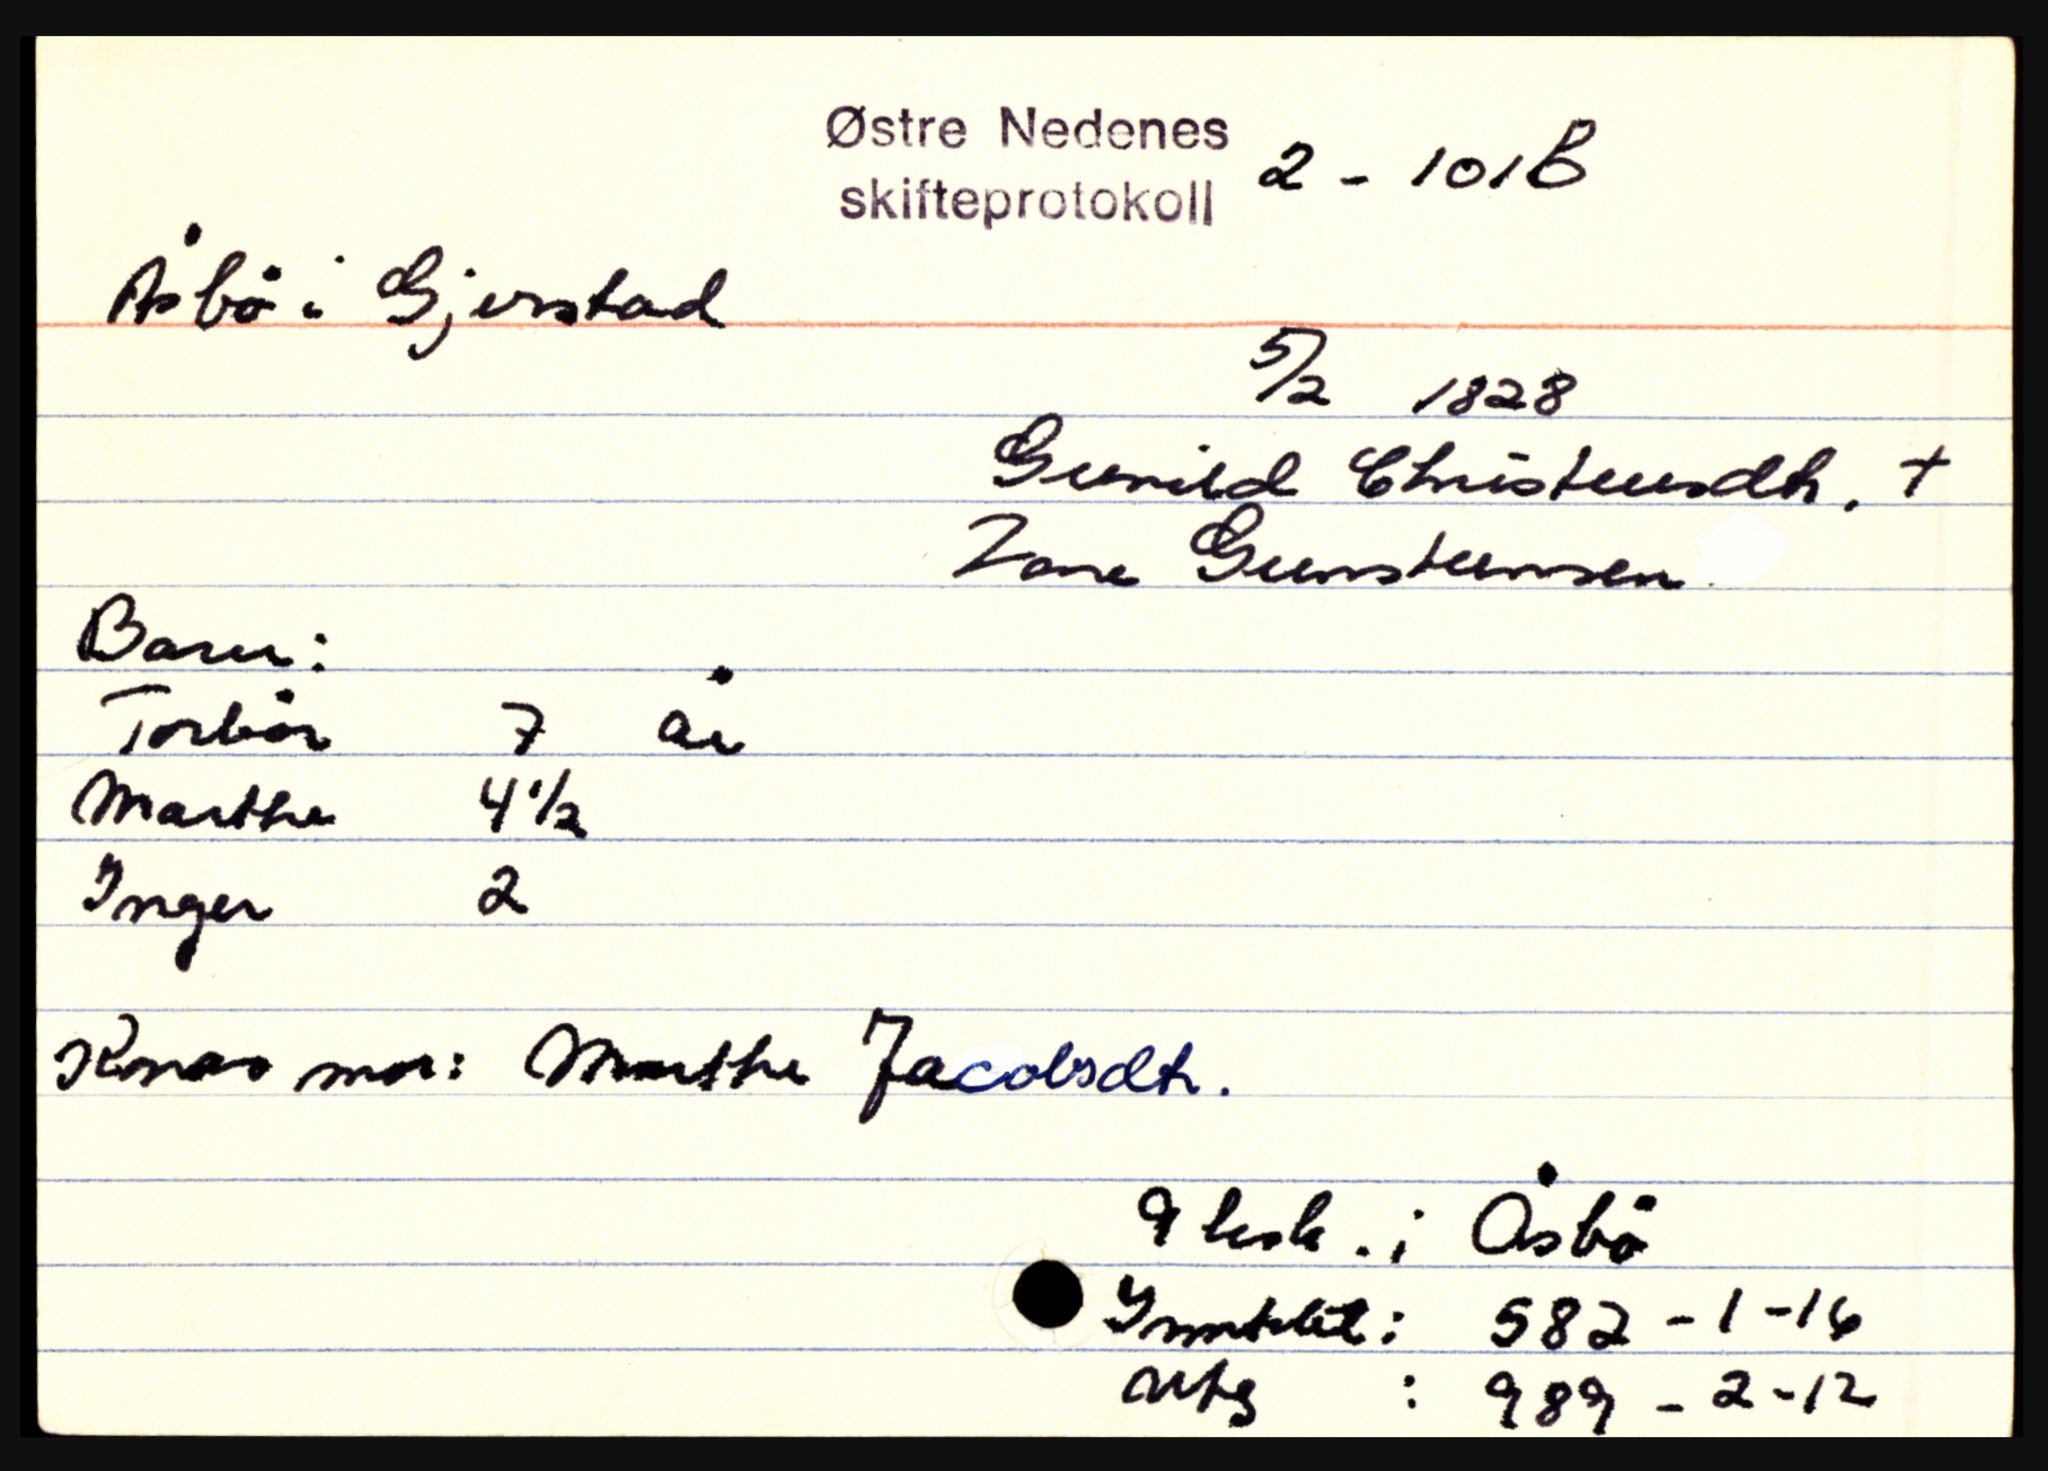 Østre Nedenes
skifteprotokoll 2 - 101B
Åsbö i Gjerstad
5/2 1828
Gunild Christensdtr. +
Tone Gunstensen
Barn:
Torbör 7 år
Marthe 4 1/2
Inger 2
Konas mor: Marthe Jacobsdtr.
i Åsbö
Inntekt: 582 - 1 - 16
Utg : 989 - 2 - 12